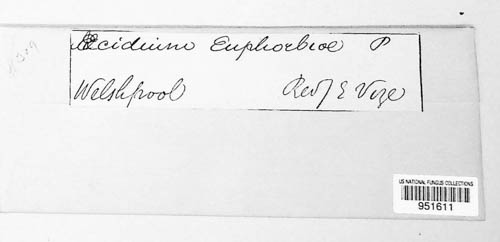 Æcidium Euphorbiae P
Welshpool Rev J E Vize
US NATIONAL FUNGUS COLLECTIONS
951611